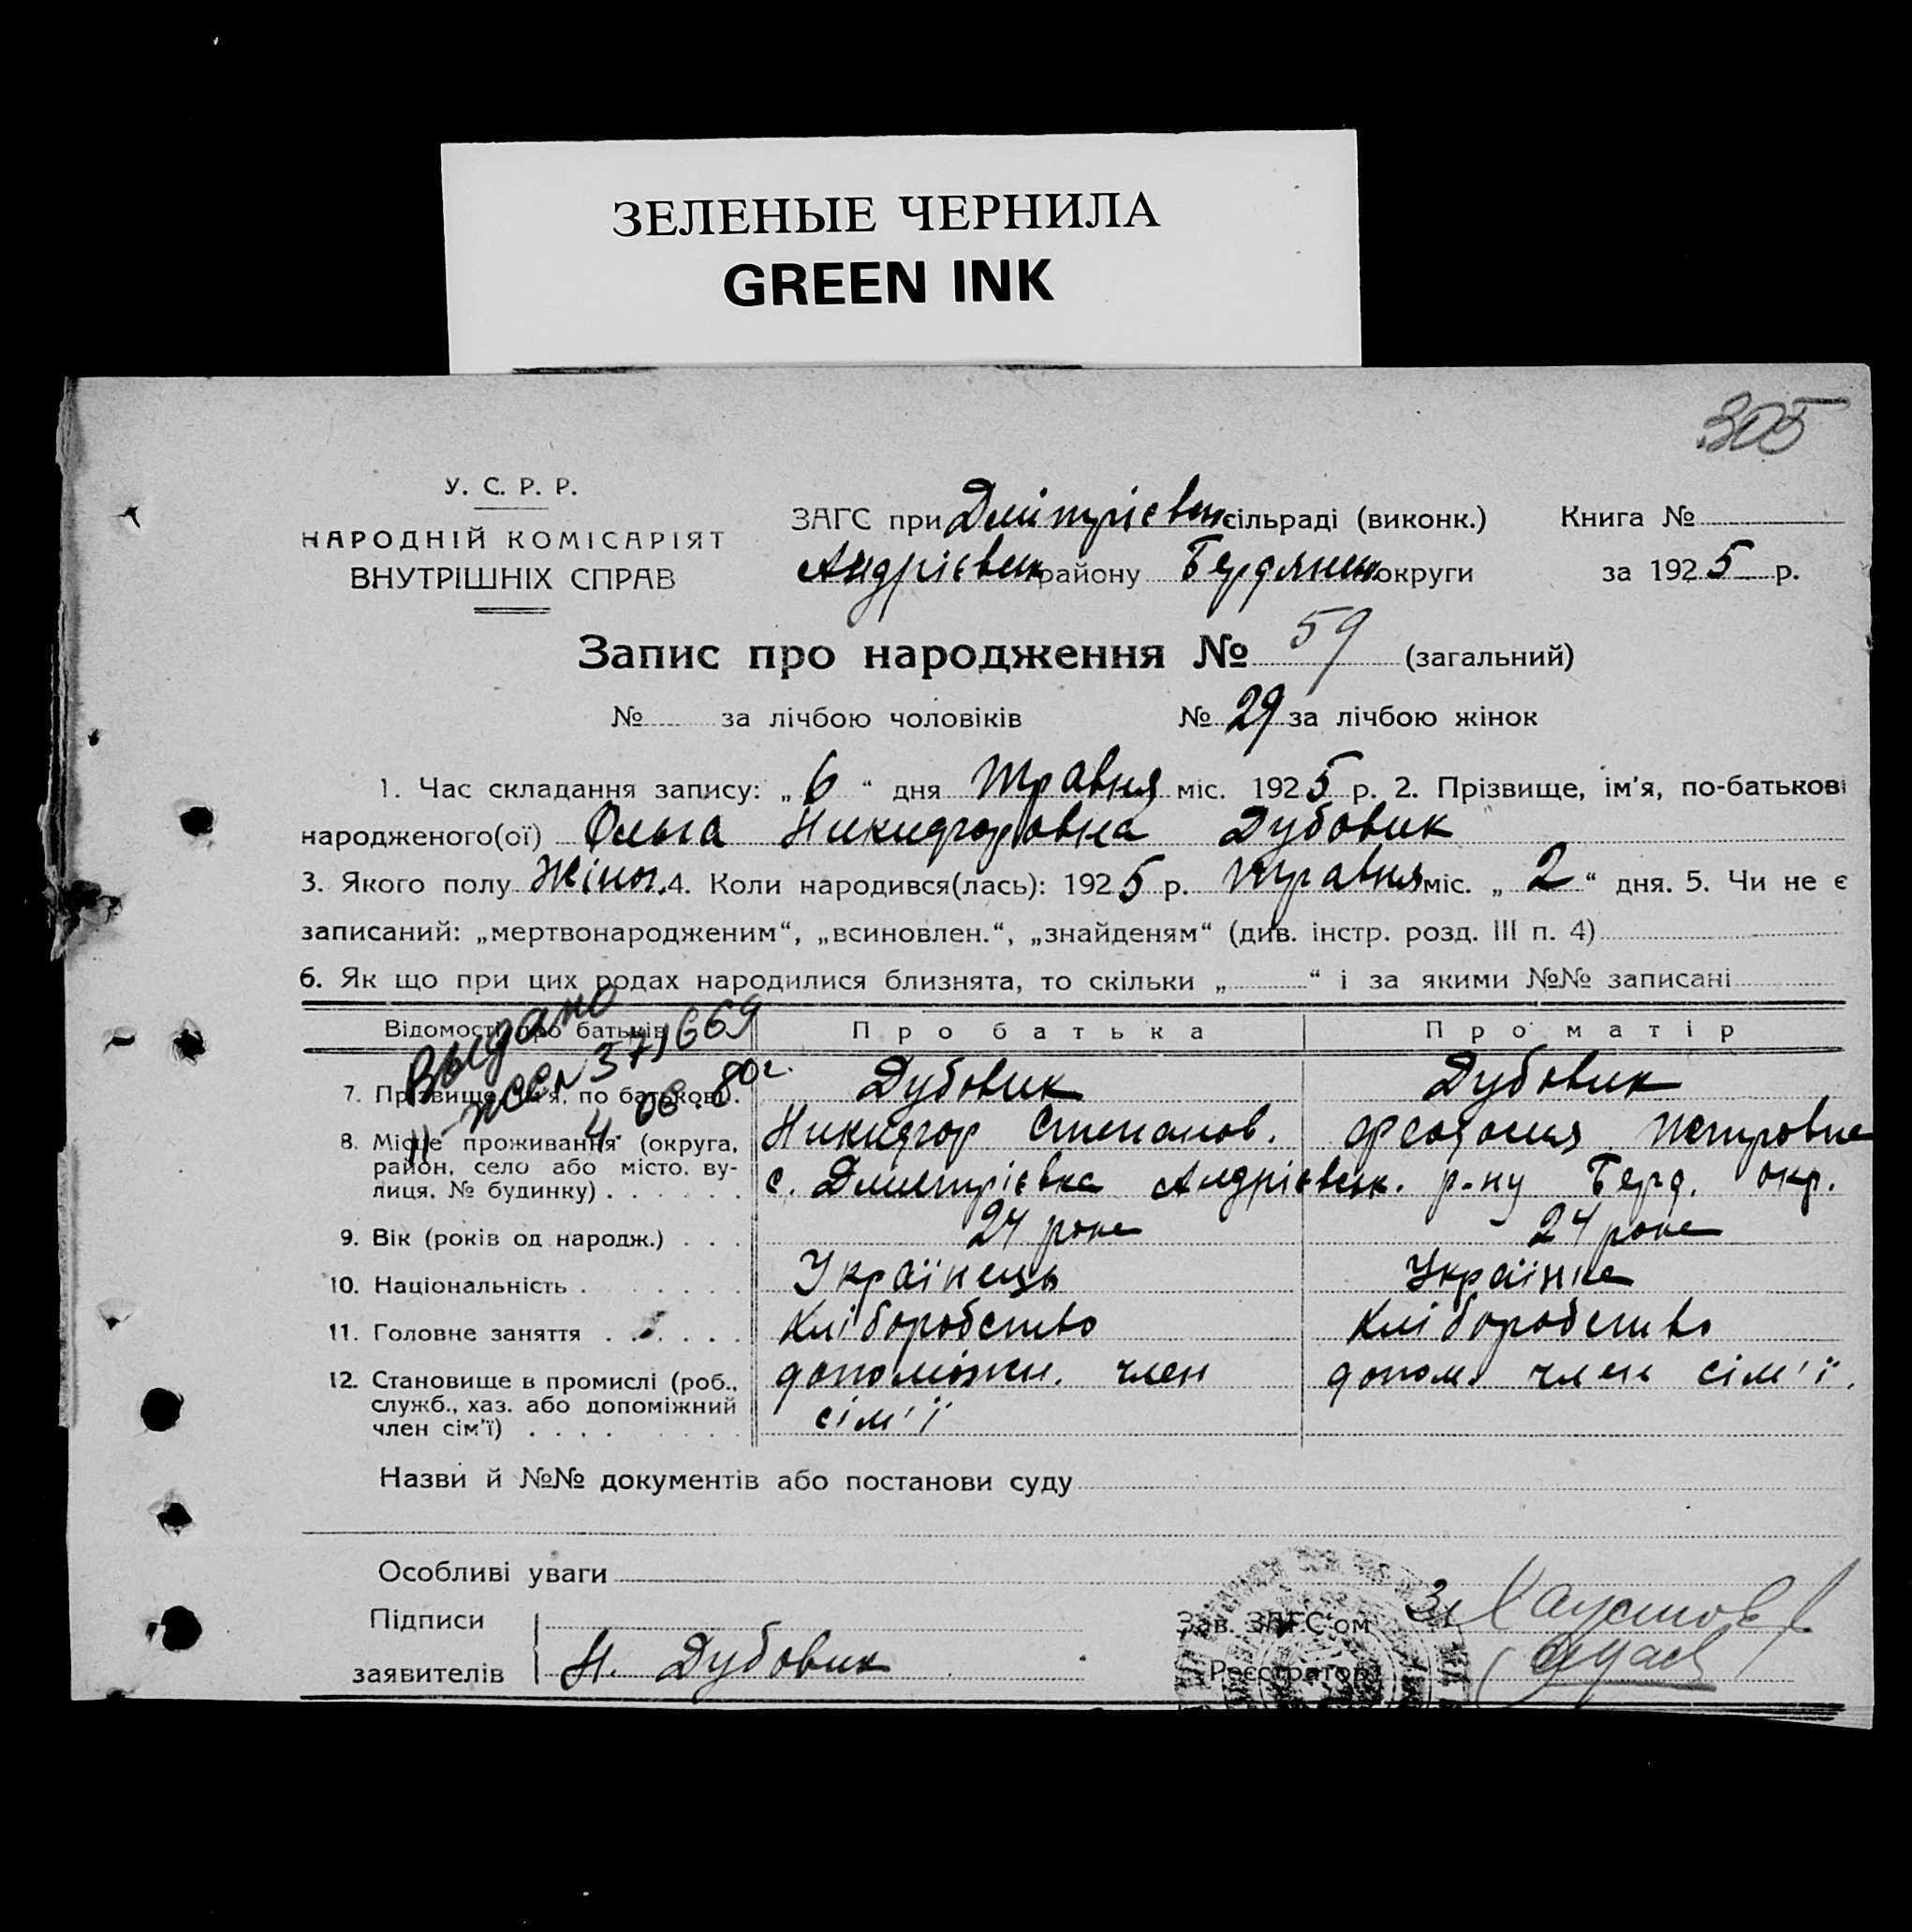 ЗЕЛЕНЫЕ ЧЕРНИЛА
GREEN INK
305
У. С. Р. Р.
НАРОДНІЙ КОМІСАРІЯТ
ВНУТРІШНІХ СПРАВ
ЗАГС при Дмітрієвск. сільраді (виконк.) Книга №
Андрієвск. району Бердянськ. округи за 1925 р.
Запис про народження № 59 (загальний)
№ за лічбою чоловіків № 29 за лічбою жінок
1. Час складання запису: „6“ дня травня міс. 1925 р. 2. Прізвище, ім'я, по-батькові
народженого(ої) Ольга Никифоровна Дубовик
3. Якого полу Жіноч. 4. Коли народився(лась): 1925 р. травня міс. „2“ дня. 5. Чи не є
записаний: „мертвонародженим“, „всиновлен.“, „знайденям“ (див. інстр. розд. III п. 4)
6. Як що при цих родах народилися близнята, то скільки „ “ і за якими №№ записані
Відомості про батьків Про батька Про матір
Выдано
№ 371669
4.06.80г.
7. Прізвище, ім'я, по батькові. Дубовик Дубовик
8. Місце проживання (округа, Никифор Степанов. Феодосия Петровна
район, село або місто, ву-
лиця, № будинку) с. Дмитрієвка Андрієвськ. р-ну Берд. окр.
9. Вік (років од народж.) 24 роки 24 роки
10. Національність Українець Українка
11. Головне заняття Хліборобство Хліборобство
12. Становище в промислі (роб., допоміжн. член допом. член сім'ї.
служб., хаз. або допоміжний сім'ї
член сім'ї)
Назви й №№ документів або постанови суду
Особливі уваги
Підписи Зав. ЗАГС'ом
заявителів Н. Дубовик Реєстратор